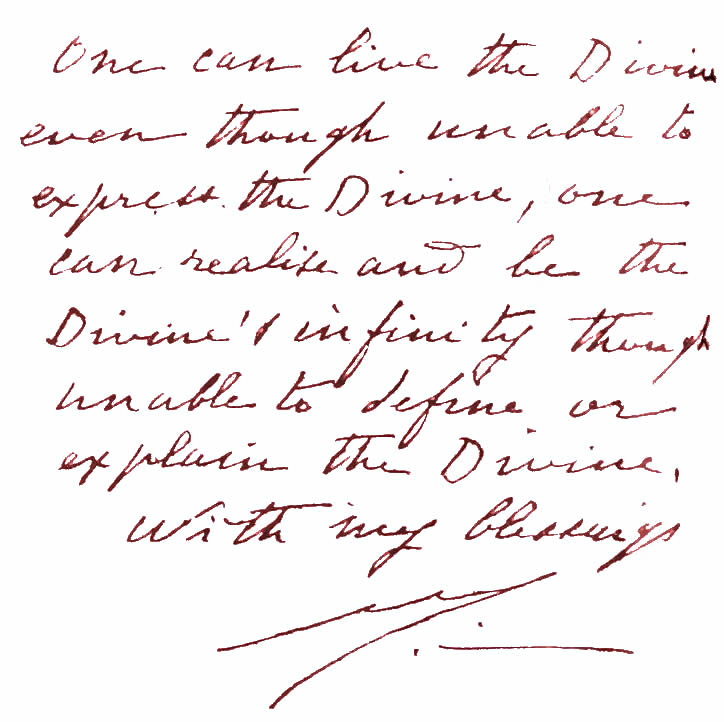 One can live the Divine
even though unable to
express the Divine, one
can realise and be the
Divine's infinity though
unable to define or
explain the Divine.
With my blessings